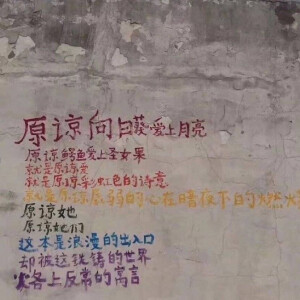 原谅向日葵爱上月亮
原谅鳄鱼爱上圣女果
就是原谅爱
就是原谅乡虹色的诗意
就是原谅底弱的心在暗夜下的燃火
原谅她
原谅她们
这本是浪漫的出入口
却被这铁铸的世界
烙上反常的寓言